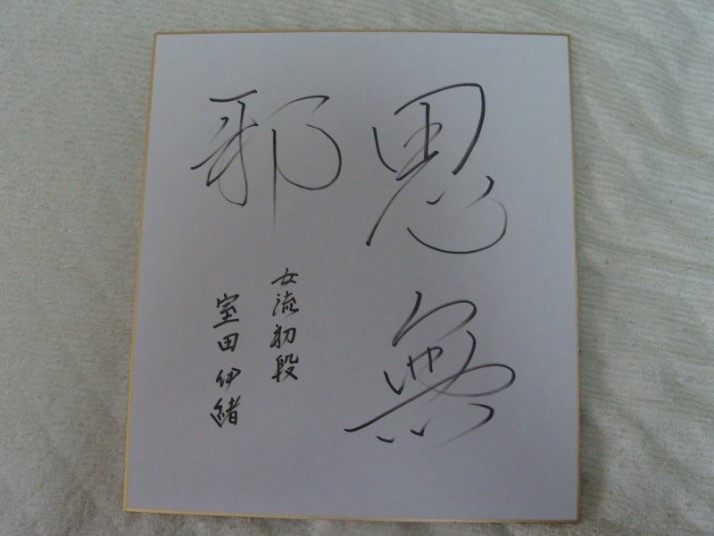 思無
邪
女流初段
室田伊緒